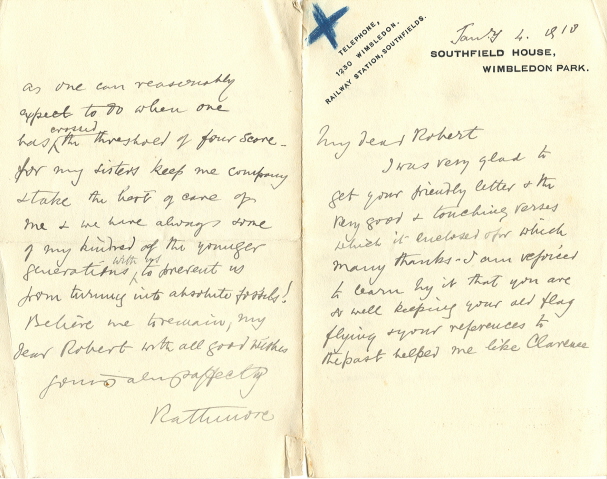 TELEPHONE,
1230 WIMBLEDON.
RAILWAY STATION, SOUTHFIELDS.
4. 1918
SOUTHFIELD HOUSE,
WIMBLEDON PARK.
My dear Robert
I was very glad to
get your friendly letter & the
very good & touching verses
which it enclosed & for which
many thanks - I am rejoiced
to learn by it that you are
so well keeping your old flag
flying & your references to
the past helped me like Clarence
as one can reasonably
expect to do when one
has crossed the threshold of four score -
for my sisters keep me company
& take the best of care of
me & we have always some
of my kindred of the younger
generations with us to prevent us
from turning into absolute fossils!
Believe me to remain, my
dear Robert with all good wishes
yours affectly
Rathmore